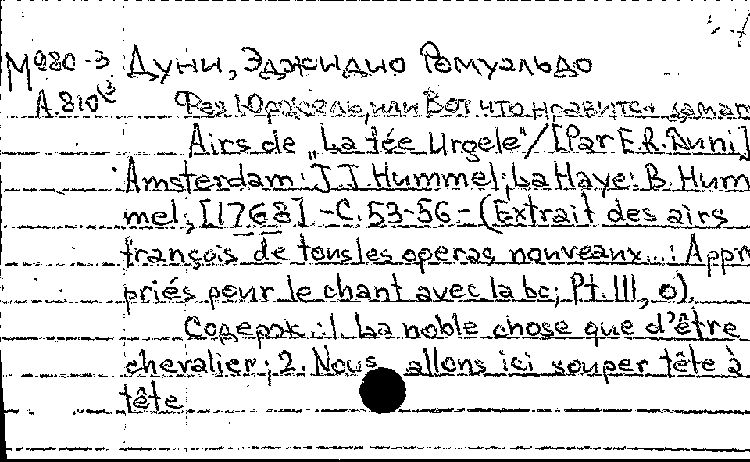 М980-3 Дуни, Эджидио Ромуальдо
А.810 Фея Юржель, или Вот что нравится дамам
Airs de „La fée Urgele"/[Par E.R. Duni]
Amsterdam: J.J. Hummel; La Haye: B. Hum
mel; [1768] - C. 53-56 - (Extrait des airs
françois de tous les operas nouveaux...: Appro
priés pour le chant avec la bc; Pt. III, o).
Содерж.: 1. La noble chose que d'être
chevalier; 2. Nous allons ici souper tête à
tête